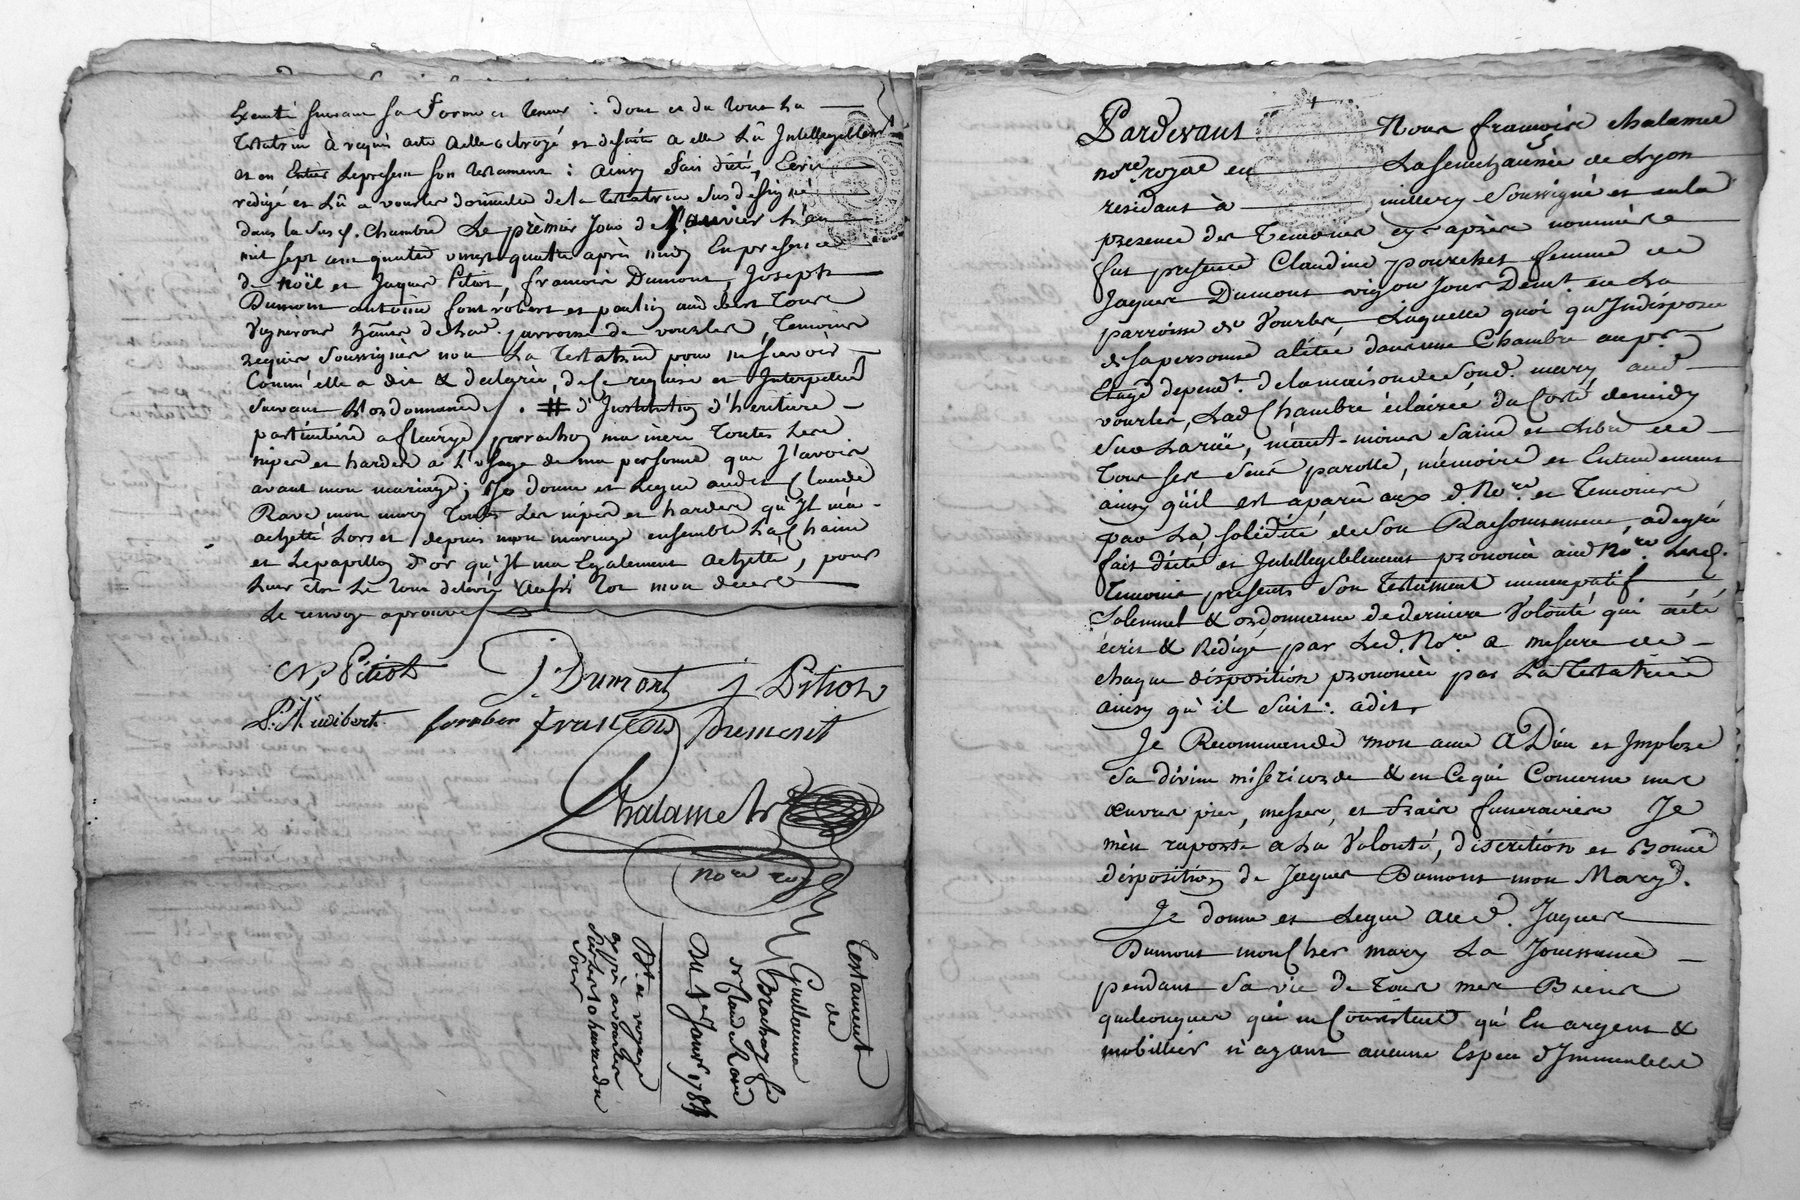 Executé suivant sa forme et teneur : dont et du tout la
Testatrice à requis acte a elle octroyé et desuite a elle Lû Intelligiblemt
et en Entier Lepresent son testament : ainsy fait dicté, Ecrit
redigé et Lû a vourles domicile de la testatrice susdesigné
dans la susd. Chambre Le prèmier Jour de Janvier L'an
mil sept cent quatre vingt quatre après midy En presence
de noël et Jaques Pitiot, francois Dumont, Joseph
Dumont antoine font robert et paul audibert Tous
vignerons de lad. parroisse de vourles, Temoins
requis Soussignés non La Testatrice pour ne scavoir
Comm'elle a dit & declarée, de Ce requise et Interpellée
Suivant L'ordonnance / . # d'Institution d'heritiere
particuliere a Brachay ma mère Toutes Les
nipes et hardes a L'usage de ma personne que J'avois
avant mon mariage ; Je donne et Legue audit Claude
Ravé mon mary Toutes Les nipes et hardes qu'Il m'a
achetté Lors et depuis mon mariage ensemble La Chaine
et Le papillon d'or qu'Il ma Egalement achetté, pour
Leur être Le tout delivré aussi tot mon deces
Le renvoy aprouvé
N, Pitiot J. Dumont j Pitiot
P. Audibert francois Dumont
Chalamel
nore roy
Testament
de
Guillemine
Brachay fe
de Claude Ravé
Du 1er Janvr 1784
Bt et voyage
après avoir été
Soir
Pardevant Nous francois chalamel
nore. royal en La senechaussée de Lyon
residant à millery Soussigné et en la
presence des Temoins cy-après nommés
fut presente Claudine pourchet femme de
Jaques Dumont vigon Jour Demt. en La
parroisse de Vourles, Laquelle quoi qu'Indisposée
de sa personne alitée dans une Chambre au pr.
Etage dependt. de la maison de Sond. mary aud
vourles, Lad Chambre éclairée du Coté de midy
sur La rüe, néant-moins Saine et Libre de
Tous ses Sens parolle, mémoire et Entendement
ainsy qu'il est aparû aux d Nore. et Temoins
par La solidité de son Raisonnement, a degré
fait dicté et Intellegiblement prononcé aud Nore. Lesd.
Temoins presents Son testament nuncupatif
Solemnel & ordonnance de derniere Volonté qui a été
écrit & Rédigé par Led. Nore. a mesure de
chaque disposition prononcée par La Testatrice
ainsy qu'il suit : a dit
Je Recommande mon ame a Dieu et Implore
Sa divine misericorde & en Ce qui Concerne mes
œuvres pies, messes, et frais funeraires Je
m'en raporte a La Volonté, discretion et Bonne
disposition de Jaques Dumont mon Mary.
Je donne et Legue aud. Jaques
Dumont mon Cher mary La Jouissance
pendant Sa vie de Tous mes Biens
quelconques qui ne Consistent qu'En argent &
mobillier n'ayant aucune Espece d'Immeubles